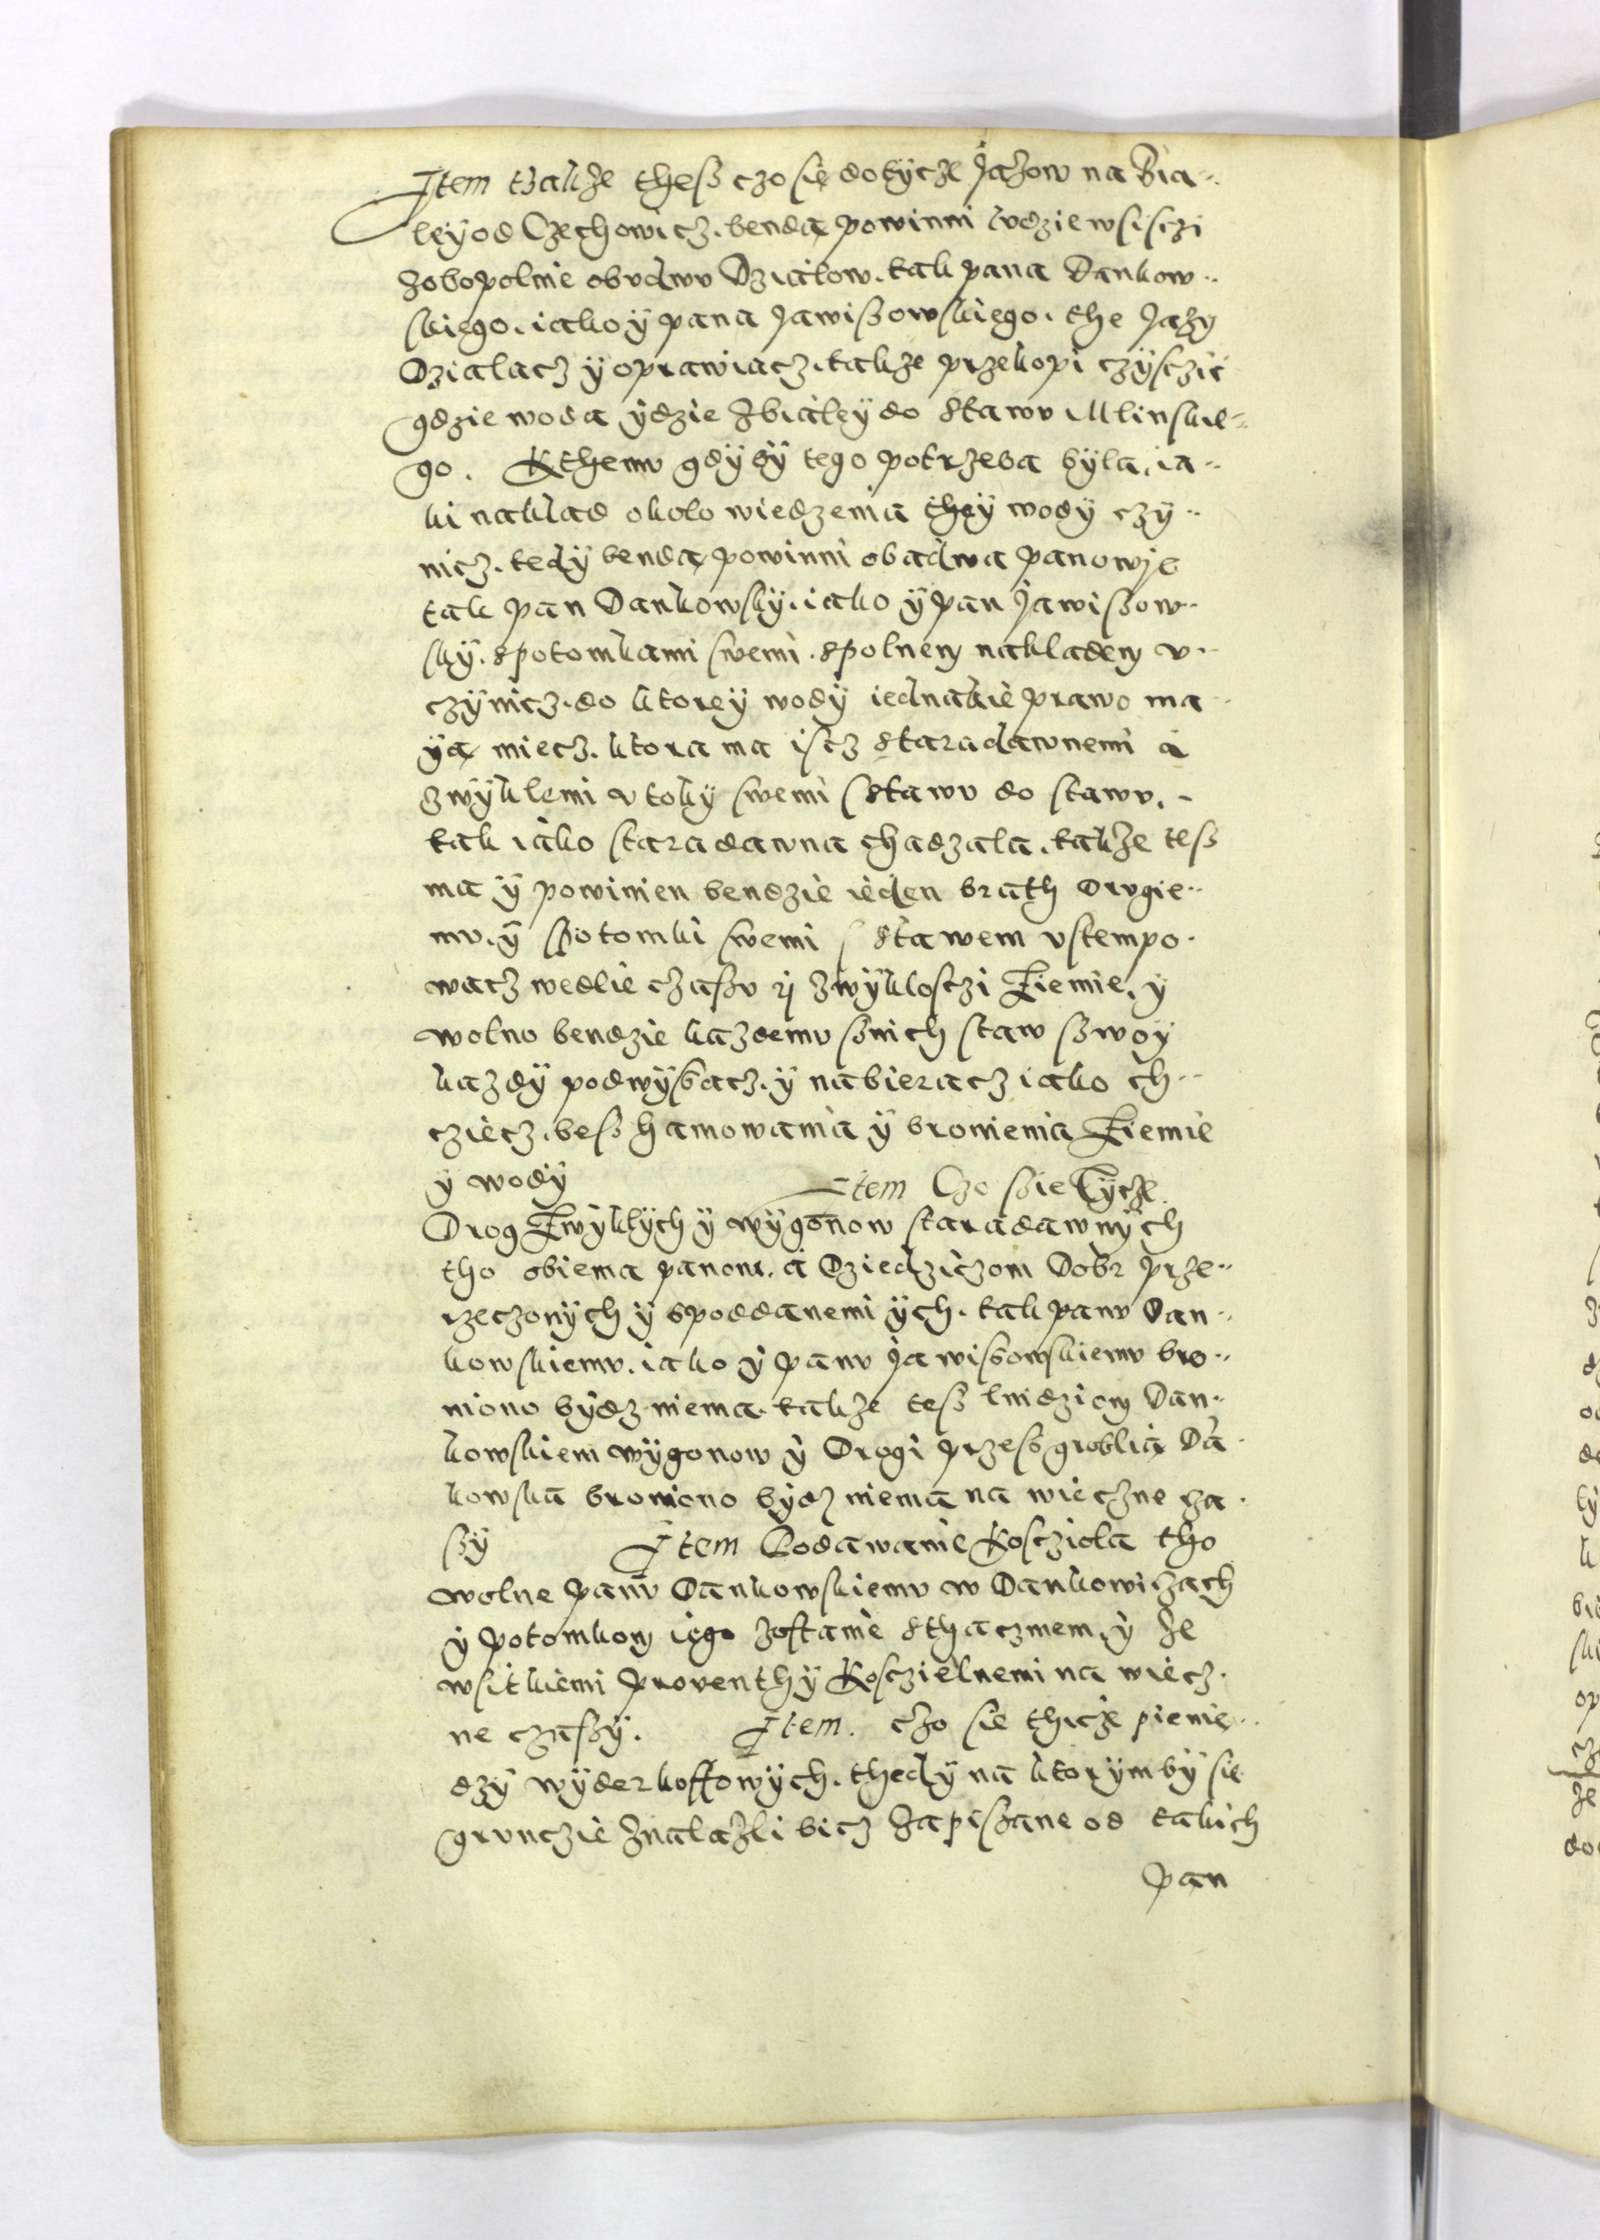 Item takze thess czo się dotycze Jazow na Bia-
leÿ od Czechowicz. benda powinni ludzie wsisczi
zobopolnie obudwu Dzialow. tak pana Dankow-
skiego. iako ÿ pana Jawissowskiego. the Jazy
Dzialacz ÿ oprawiacz. takze przekopi czÿsczic
gdzie woda ÿdzie Zbialeÿ do Stawu Mlinskie-
go. Kthemu gdÿ bÿ tego potrzeba bÿla, ia-
ki naklad okolo wiedzenia theÿ wodÿ czÿ-
nicz. tedÿ benda powinni obadwa panowie
tak pan Dankowskÿ. iako ÿ pan Jawissow-
skÿ. Spotomkami swemi. Spolnem nakladem v-
czÿnicz. do ktoreÿ wodÿ iednakie prawo ma
ÿa miecz. ktora ma iscz Staradawnemi a
zwÿklemi vtokÿ swemi Stawu do stawu. -
tak iako staradawna chadzala. takze tess
ma ÿ powinien bendzie ieden brath Drugie-
mu. ÿ Spotomki swemi Stawem vstempo-
wacz wedlie czassu ÿ zwÿklosczi Ziemie, ÿ
wolno bendzie kazdemu ssnich staw sswoÿ
kazdÿ podwÿssacz. ÿ nabieracz iako ch-
cziecz. bess hamowania ÿ bronienia Ziemie
ÿ wodÿ Item Czo ssie Tÿcze
Drog Zwÿklÿch ÿ wÿgonow staradawnÿch
tho obiema panom. a Dziedziczom Dobr prze-
rzeczonÿch ÿ spoddanemi ÿch. tak panu Dan-
kowskiemu. iako ÿ panu Jawissowskiemu bro-
niono bÿdz niema. takze tess lmdziom Dan-
kowskiem wÿgonow ÿ Drogi przess groblia Da
kowska broniono bÿdz niema na wieczne cza
ssÿ Item Podawanie Koscziola tho
wolne panu Dankowskiemu w Dankowiczach
ÿ potomkom iego zostanie Sthaczmem, ÿ Ze
wsitkiemi proventhÿ Kosczielnemi na wiecz-
ne czassÿ. Item. czo sie thicze pienię-
dzÿ wÿderkoffowÿch. thedÿ na ktorÿm bÿ sie
grunczie Znalazli bicz Zapissane od takich
pan